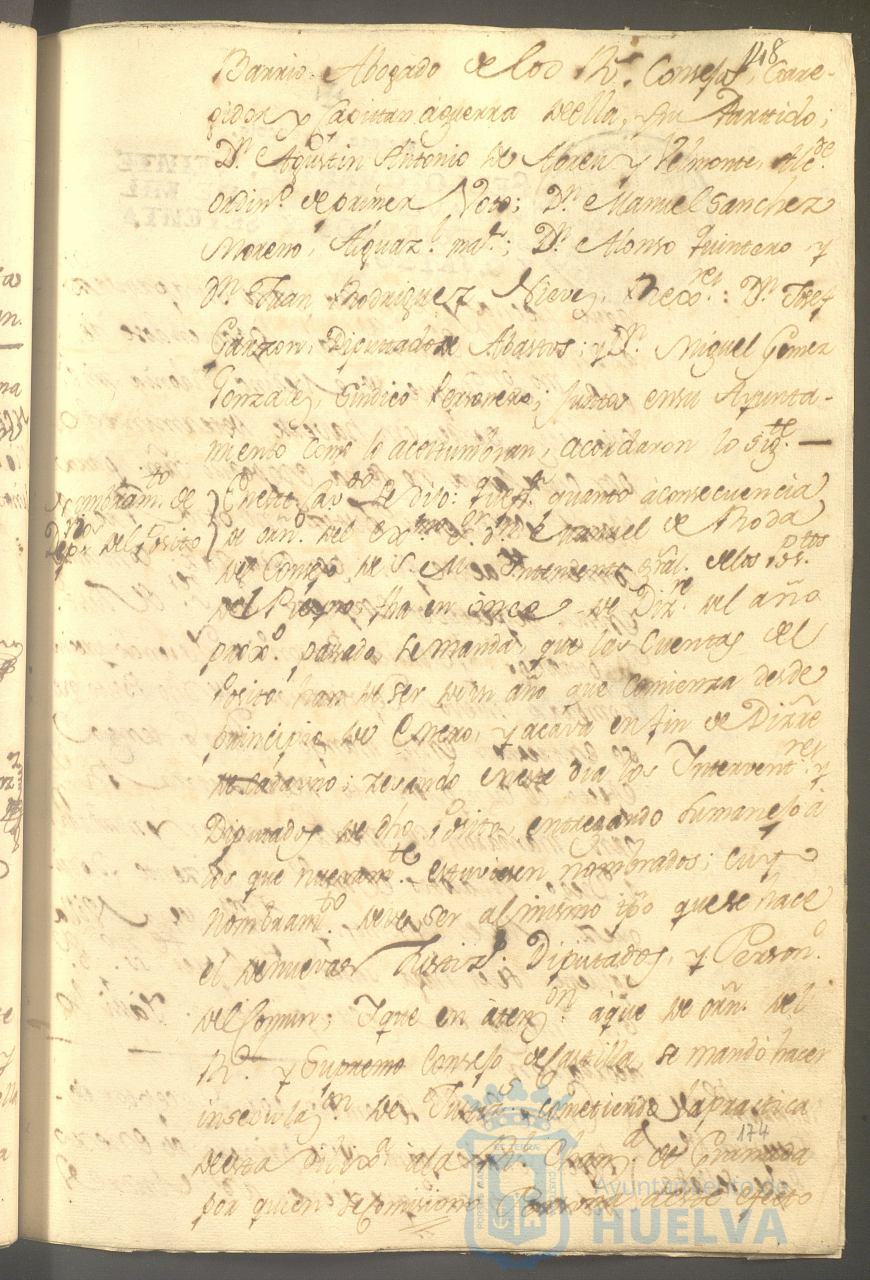 148
Barrio Abogado de los R.s Consejos, Corre-
gidor y Capitan aguerra de ella, y su Partido;
D.n Agustin Antonio de Abreu y Velmonte, Alc.de
ordin.o de primer Voto; D.n Manuel Sanchez
Moreno, Alguaz.l ma.r; D.n Alonso Quintero y
D.n Juan Rodriguez Nieve, Rexid.res: D.n Josef
Garzon, Diputado de Abastos; y D.n Miguel Gomez
Gonzalez, Sindico Personero; junto en su Ayunta-
miento como lo acostumbran, acordaron lo sig.te
Nombram.to de
Depos.rio del Posito
En este Cav.do se dijo: que p.r quanto à consecuencia
de orñ. del Ex.mo S.r d.n Manuel de Roda
del Consejo de S. M. Intendente gral. de los Positos
del Reyno, fha en once de Diz.re del año
prox.o pasado, se manda, que las Cuentas del
Posito han de ser de un año que comienza desde
principio de Enero, y acava en fin de Dizre
de cada año; zesando en este dia los Intervent.res y
Diputados de dho Posito, entregando su manejo à
los que nuevam.te estuviesen nombrados; cuyo
Nombram.to deve ser al mismo tpo que se hace
el de nuevas Justiz.s Diputados, y Person.o
del Comun; Y que en aten.on à que de orñ. del
R.l y Supremo Consejo de Castilla, se mandò hacer
insecula.on de Justiz.s cometiendo la practica
de esta dilix.a à la R.l Chan.a de Granada
por quien se comisiono Persona à este efecto
174
Ayuntamiento de
HUELVA